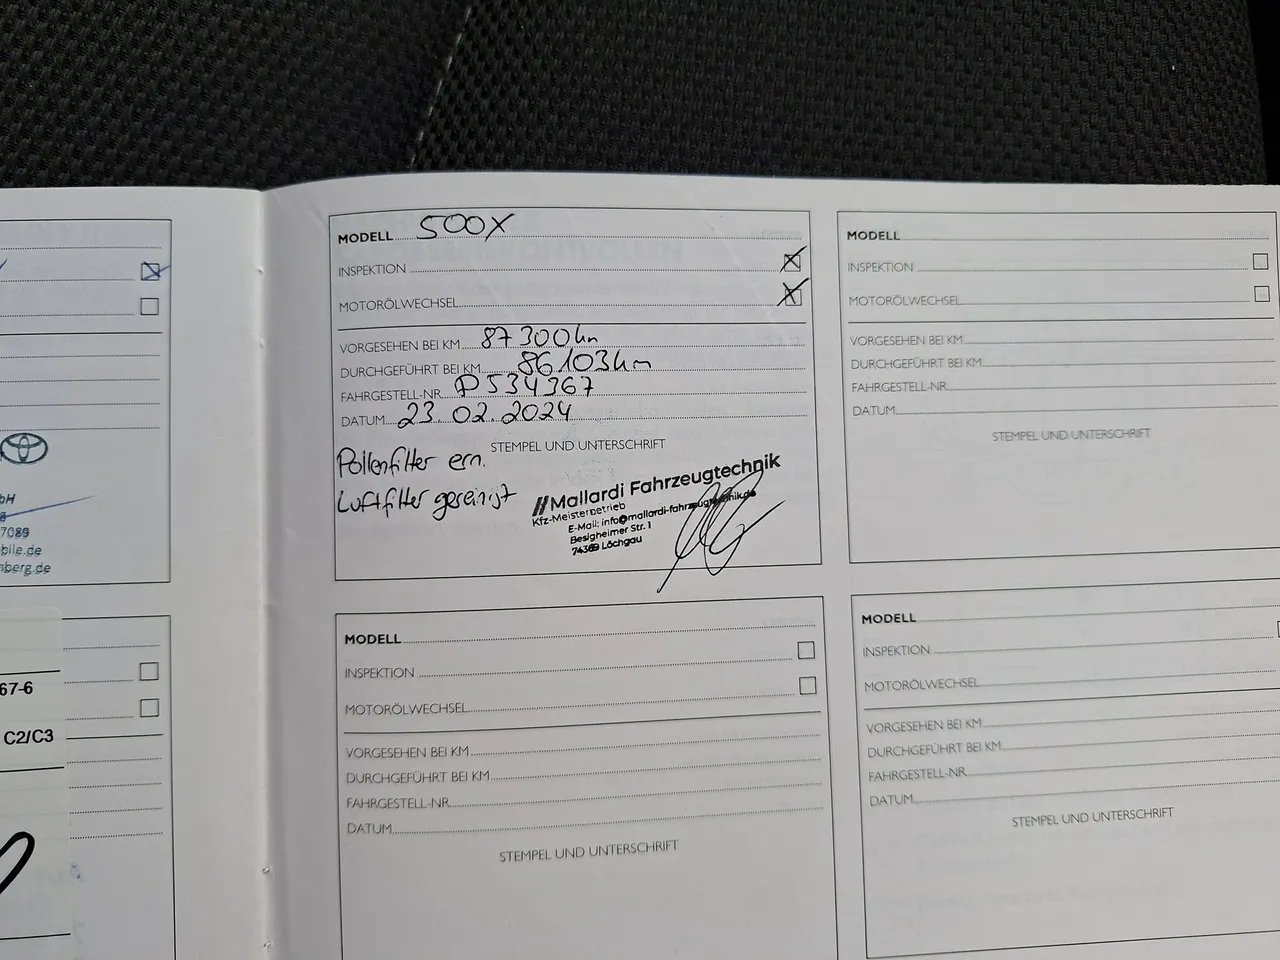 bH
7089
bile.de
nberg.de
67-6
C2/C3
MODELL 500X
INSPEKTION
MOTORÖLWECHSEL
VORGESEHEN BEI KM 87 300 km
DURCHGEFÜHRT BEI KM 86.103 km
FAHRGESTELL-NR. P534367
DATUM 23.02.2024
STEMPEL UND UNTERSCHRIFT
Pollenfilter ern.
Luftfilter gereinigt
//Mallardi Fahrzeugtechnik
Kfz-Meisterbetrieb
E-Mail: info@mallardi-fahrzeugtechnik.de
Besigheimer Str. 1
74369 Löchgau
MODELL
INSPEKTION
MOTORÖLWECHSEL
VORGESEHEN BEI KM
DURCHGEFÜHRT BEI KM
FAHRGESTELL-NR.
DATUM
STEMPEL UND UNTERSCHRIFT
MODELL
INSPEKTION
MOTORÖLWECHSEL
VORGESEHEN BEI KM
DURCHGEFÜHRT BEI KM
FAHRGESTELL-NR.
DATUM
STEMPEL UND UNTERSCHRIFT
MODELL
INSPEKTION
MOTORÖLWECHSEL
VORGESEHEN BEI KM
DURCHGEFÜHRT BEI KM
FAHRGESTELL-NR.
DATUM
STEMPEL UND UNTERSCHRIFT